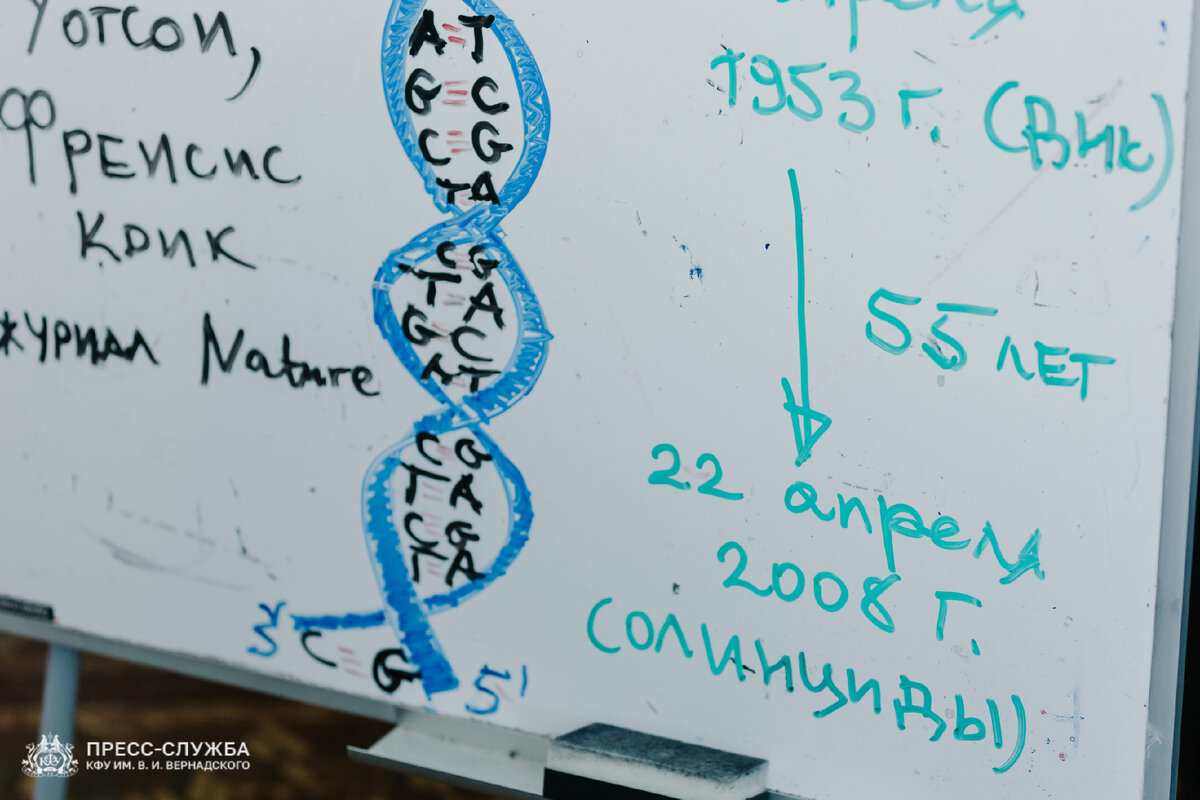 Уотсон,
Фрейсис
Крик
журнал Nature
A T
G C
C G
T A
C G
T A
G C
A T
C G
T A
C G
T A
3'
C G
5'
апреля
1953 г. (ВИК)
55 лет
22 апреля
2008 г.
(СОЛИНЦИДЫ)
ПРЕСС-СЛУЖБА
КФУ ИМ. В. И. ВЕРНАДСКОГО